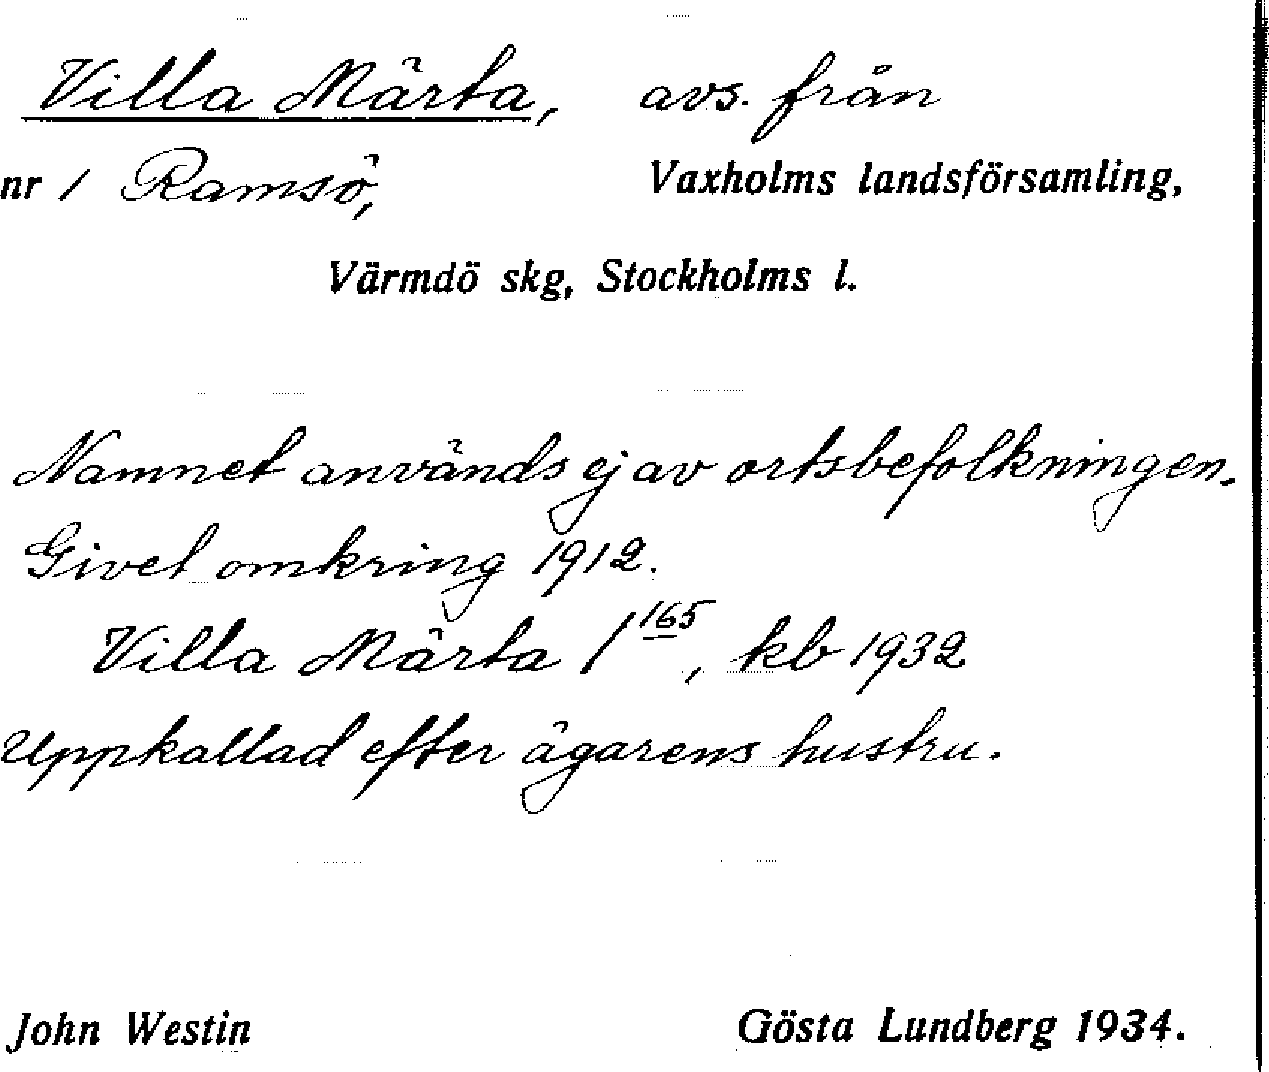 Villa Märta, avs. från
nr 1 Ramsö, Vaxholms landsförsamling,
Värmdö skg, Stockholms l.
Namnet används ej av ortsbefolkningen.
Givet omkring 1912.
Villa Märta 1 165, kb 1932
Uppkallad efter ägarens hustru.
John Westin Gösta Lundberg 1934.